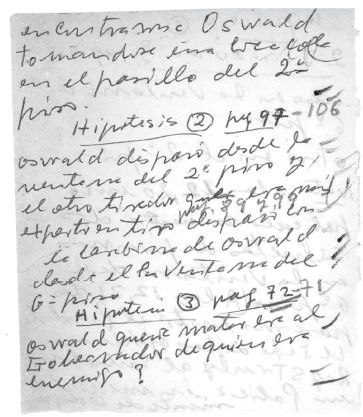 encontrasose Oswald
tomandose una coca cola
en el pasillo del 2º
piso.
Hipotesis ② pag 97-106
oswald disparó desde la
ventana del 2º piso y
el otro tirador que era más
experto en tiro disparó con
la carabina de oswald
desde el la ventana del
6º piso
Hipotesis ③ pag 72-71
oswald queria matar era al
Gobernador de quien era
enemigo?